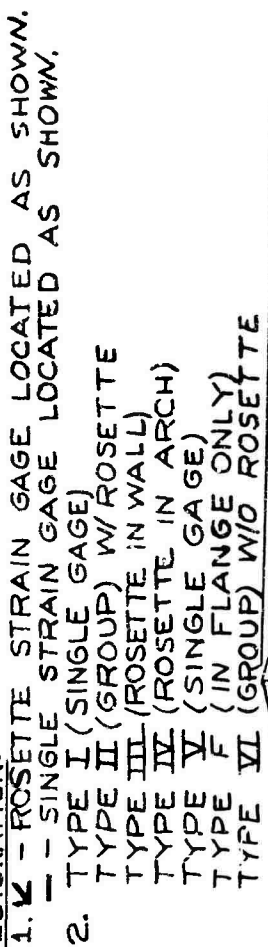 1. - ROSETTE STRAIN GAGE LOCATED AS SHOWN.
— - SINGLE STRAIN GAGE LOCATED AS SHOWN.
2. TYPE I (SINGLE GAGE)
TYPE II (GROUP) W/ ROSETTE
TYPE III (ROSETTE IN WALL)
TYPE IV (ROSETTE IN ARCH)
TYPE V (SINGLE GAGE)
TYPE F (IN FLANGE ONLY)
TYPE VI (GROUP) W/O ROSETTE